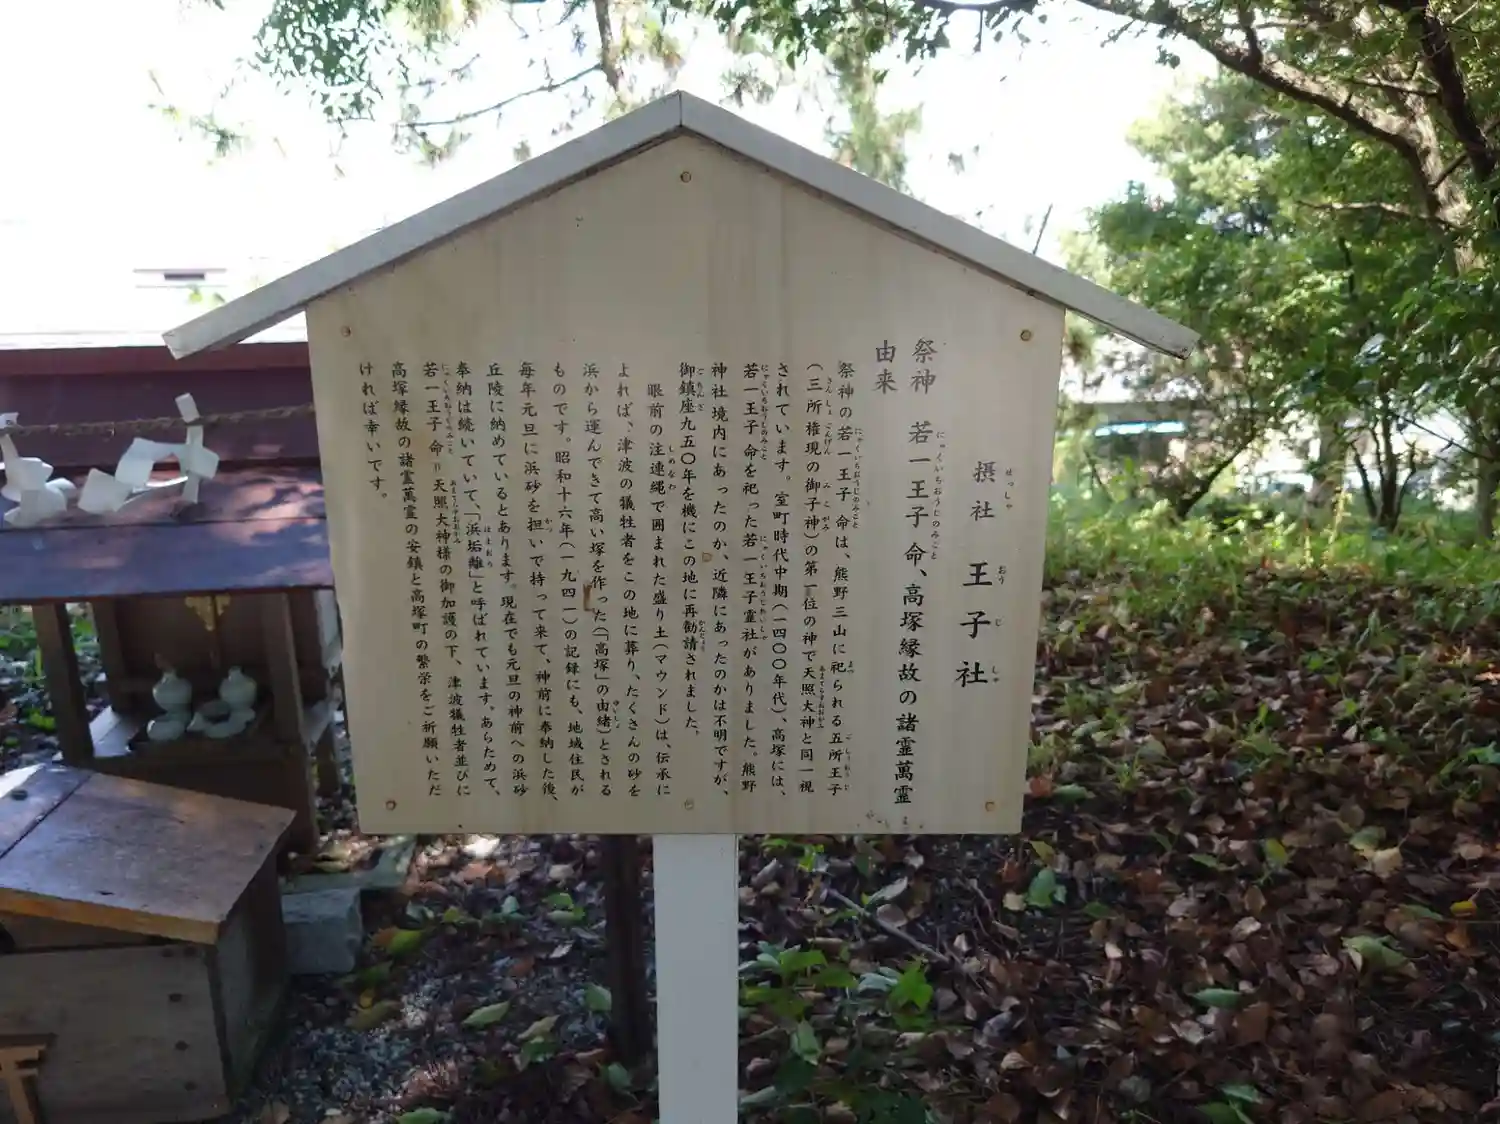 摂社 王子社
祭神 若一王子命、高塚縁故の諸霊萬霊
由来
祭神の若一王子命は、熊野三山に祀られる五所王子
(三所権現の御子神)の第一位の神で天照大神と同一視
されています。室町時代中期(一四〇〇年代)、高塚には、
若一王子命を祀った若一王子霊社がありました。熊野
神社境内にあったのか、近隣にあったのかは不明ですが、
御鎮座九五〇年を機にこの地に再勧請されました。
眼前の注連縄で囲まれた盛り土(マウンド)は、伝承に
よれば、津波の犠牲者をこの地に葬り、たくさんの砂を
浜から運んできて高い塚を作った(「高塚」の由緒)とされる
ものです。昭和十六年(一九四一)の記録にも、地域住民が
毎年元旦に浜砂を担いで持って来て、神前に奉納した後、
丘陵に納めているとあります。現在でも元旦の神前への浜砂
奉納は続いていて、「浜垢離」と呼ばれています。あらためて、
若一王子命=天照大神様の御加護の下、津波犠牲者並びに
高塚縁故の諸霊萬霊の安鎮と高塚町の繁栄をご祈願いただ
ければ幸いです。